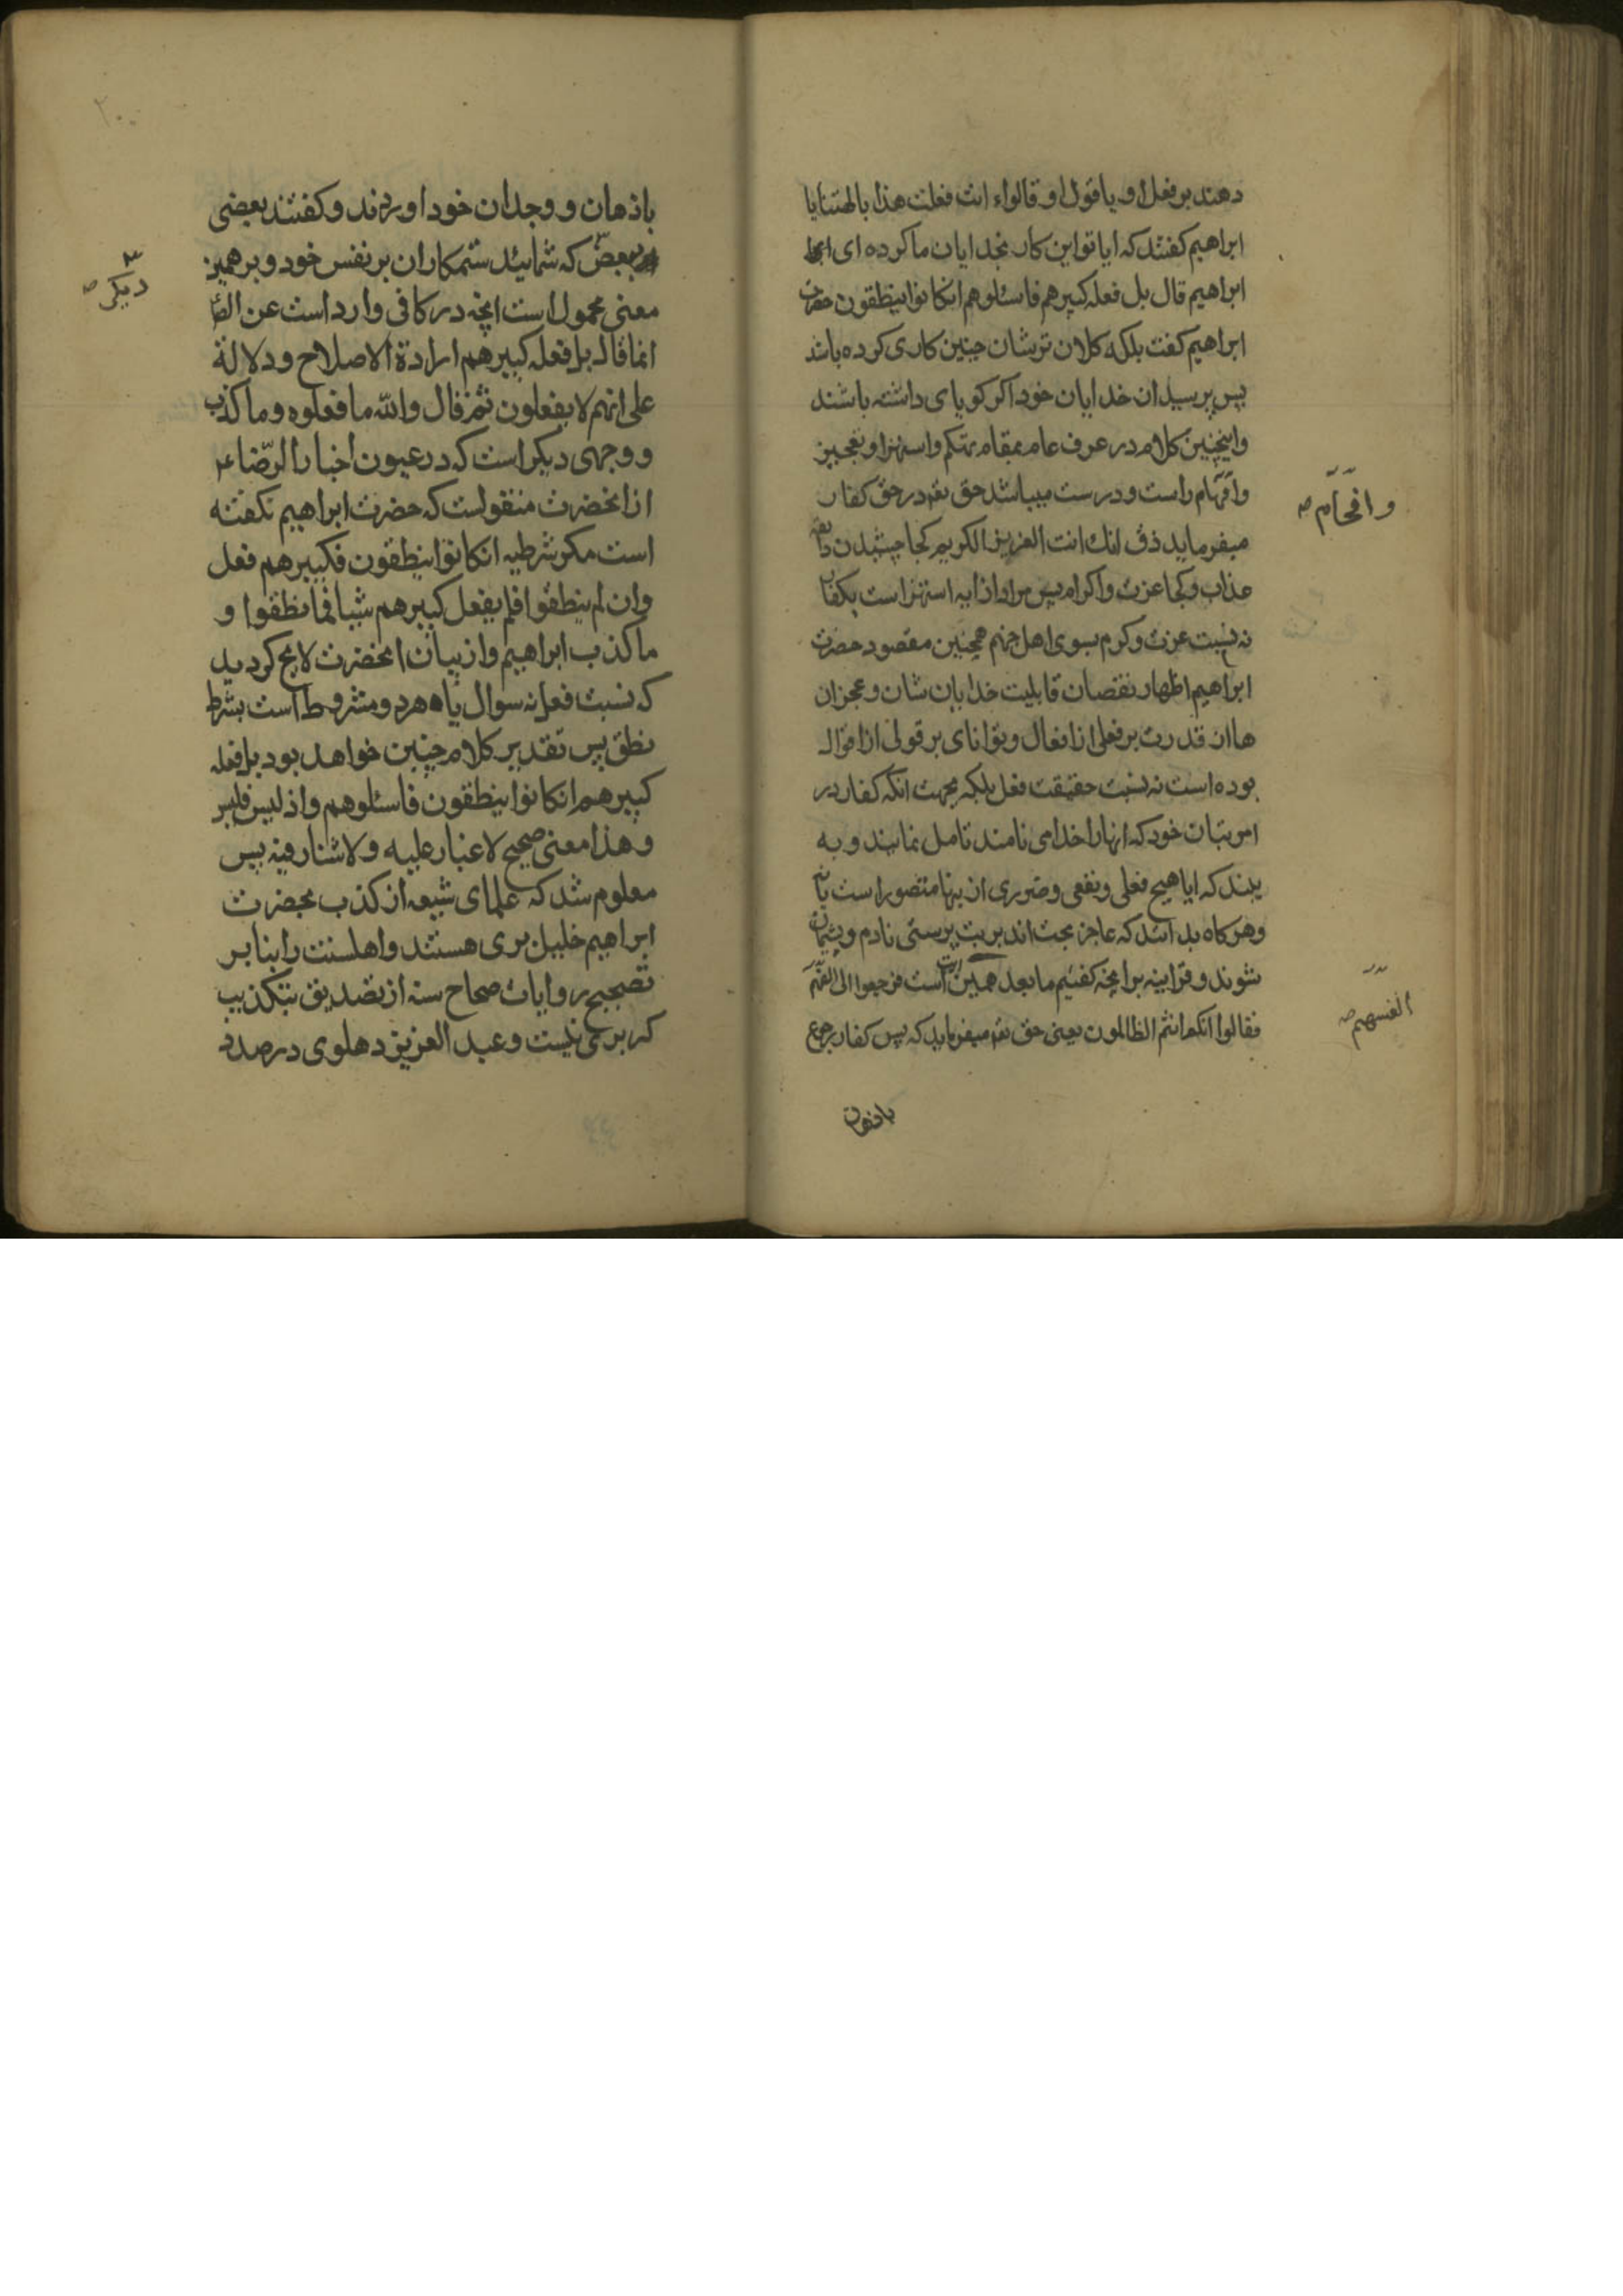 دهند بر فعل او یا قول او قالواء انت فعلت هذا بالهتنا یا
ابراهیم کفتند که ایا تو این کار بخدایان ما کرده ای
ابراهیم قال بل فعله کبیرهم فاسئلوهم انکانوا ینطقون حضرت
ابراهیم کفت بلکه کلان ترشان چنین کاری کرده باشد
پس بپرسید ان خدایان خود اکر کویای داشته باشند
و اینچنین کلام در عرف عام بمقام تهکم و استهزا و تعجیز
و افهام راست و درست میباشد حق تع در حق کفار
میفرماید ذق انک انت العزیز الکریم کجا چشیدن
عذاب و کجا عزت و اکرام پس مراد از ایه استهزا است بکفار
نه نسبت عزت و کرم بسوی اهل جهنم همچنین مقصود حضرت
ابراهیم اظهار نقصان قابلیت خدایان شان و عجز ان
هاان قدرت بر فعلی از افعال و توانای بر قولی از اقوال
بوده است نه نسبت حقیقت فعل بلکه بجهت انکه کفار در
امر بتان خود که انها را خدا می نامند تامل نمایند و به
بینند که ایا هیچ فعلی و نفعی و ضرری از ینها متصور است یا نه
و هر کاه بدانند که عاجز بحت اند بر بت پرستی نادم و پشیمان
شوند و قراینه بر انچه کفتیم ما بعد همین ایت است فرجعوا الی انفسهم
فقالوا انکم انتم الظالمون یعنی حق تع میفرماید که پس کفار رجوع
باذهان
و افحام صح
انفسهم صح
۲۰۰
باذهان و وجدان خود اوردند و کفتند بعضی
بعض که شمائید ستمکاران بر نفس خود و بر همین
معنی محمول است انچه در کافی وارد است عن الص
انما قال بل فعله کبیرهم ارادة الاصلاح و دلالة
علی انهم لا یفعلون ثم قال والله ما فعلوه و ما کذب
و وجهی دیکر است که در عیون اخبار الرضا ع
از انحضرت منقولست که حضرت ابراهیم نکفته
است مکر شرطیه انکانوا ینطقون فکبیرهم فعل
و ان لم ینطقوا فلم یفعل کبیرهم شیئا فما نطقوا و
ما کذب ابراهیم و از بیان انحضرت لایح کردید
که نسبت فعل نه سوال یاه هرد و مشروط است بشرط
نطق پس تقدیر کلام چنین خواهد بود بل فعله
کبیرهم انکانوا ینطقون فاسئلوهم و اذ لیس فلیس
و هذا معنی صحیح لا غبار علیه و لا شنار فیه پس
معلوم شد که علمای شیعه از کذب بحضرت
ابراهیم خلیل بری هستند و اهلسنت را بنا بر
تصحیح روایات صحاح سته از تصدیق بتکذیب
کریزی نیست و عبد العزیز دهلوی در صدد
دیکر صح